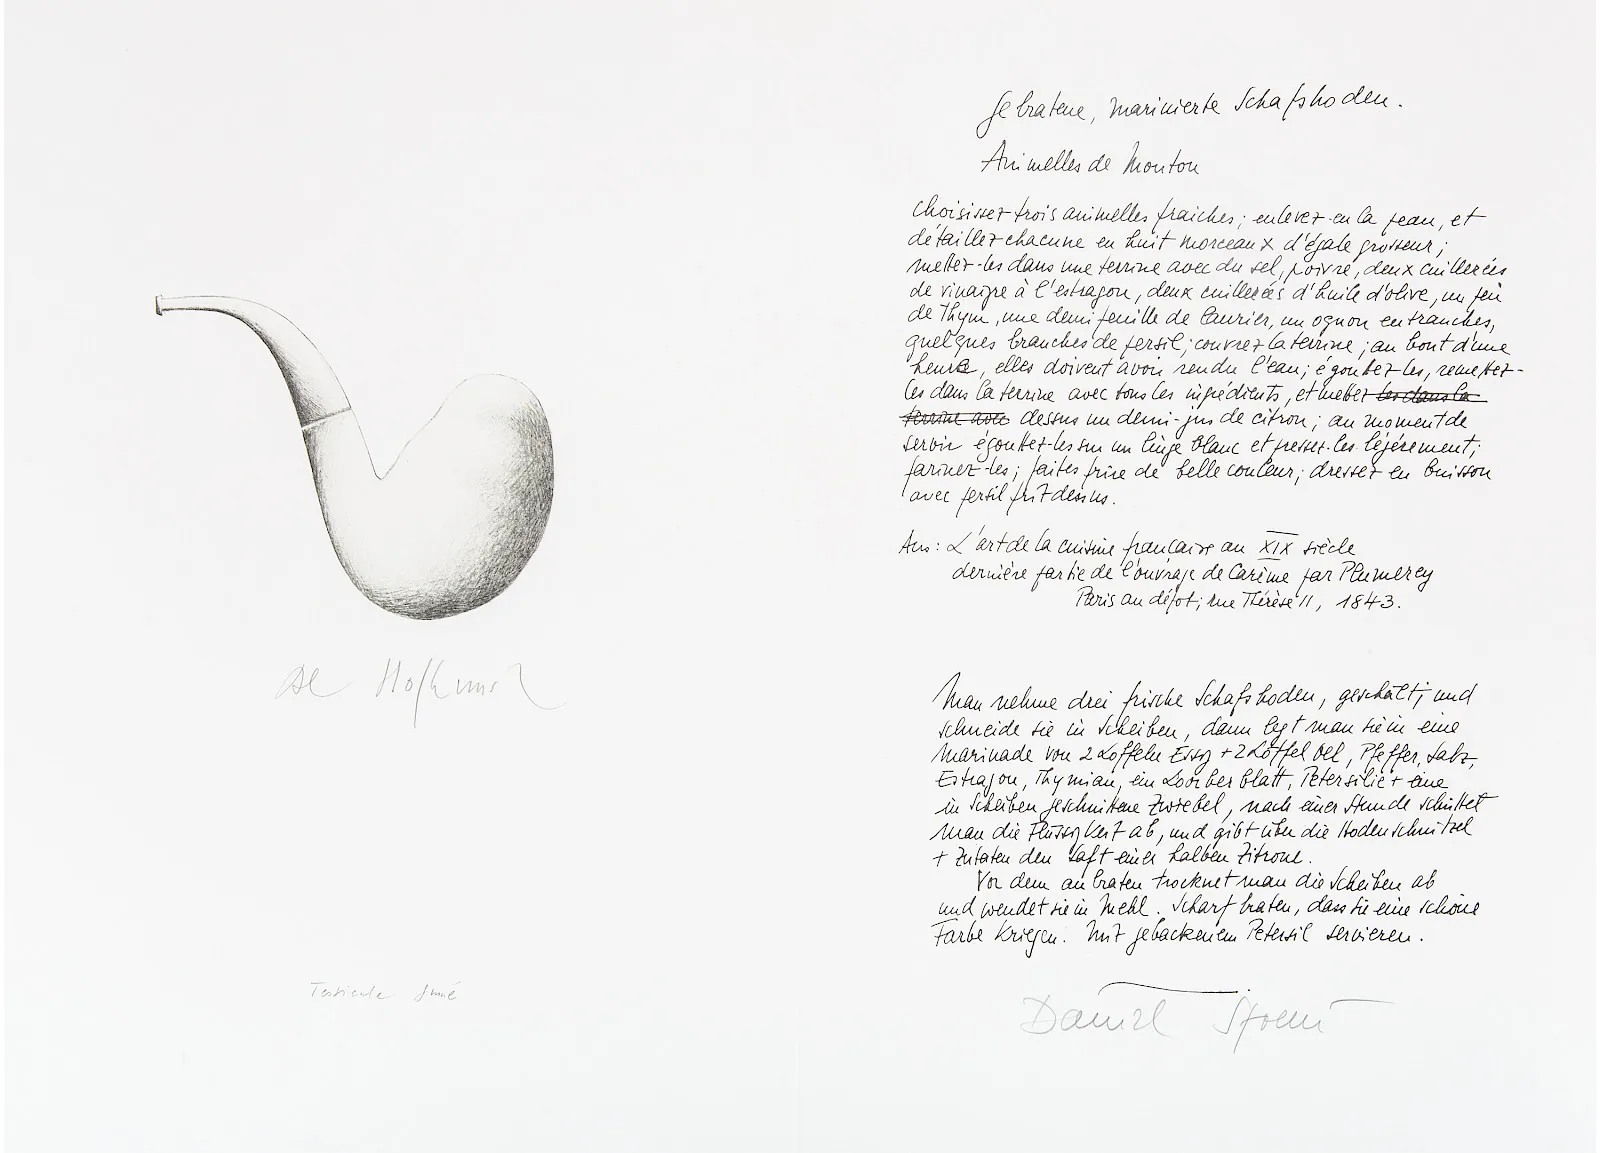 Gebratene, marinierte Schafshoden.
Animelles de Mouton
Choisissez trois animelles fraiches; enlevez-en la peau, et
détaillez chacune en huit morceaux d'égale grosseur;
mettez-les dans une terrine avec du sel, poivre, deux cuillerées
de vinaigre à l'estragon, deux cuillerées d'huile d'olive, un peu
de Thym, une demi feuille de laurier, un ognon en tranches,
quelques branches de persil; couvrez la terrine; au bout d'une
heure, elles doivent avoir rendu l'eau; égouttez-les, remettez-
les dans la terrine avec tous les ingrédients, et mettez les dans la
terrine avec dessus un demi-jus de citron; au moment de
servir égouttez-les sur un linge blanc et pressez-les légèrement;
farinez-les; faites frire de belle couleur; dressez en buisson
avec persil frit dessus.
Aus: L'art de la cuisine française au XIX siècle
dernière partie de l'ouvrage de Carême par Plumerey
Paris au dépot; rue Thérèse 11, 1843.
Man nehme drei frische Schafshoden, geschält, und
schneide sie in Scheiben, dann legt man sie in eine
Marinade von 2 Löffeln Essig + 2 Löffel Oel, Pfeffer, Salz,
Estragon, Thymian, ein Loorberblatt, Petersilie + eine
in Scheiben geschnittene Zwiebel, nach einer Stunde schüttet
man die Flüssigkeit ab, und gibt über die Hodenschnitzel
+ Zutaten den Saft einer halben Zitrone.
Vor dem anbraten trocknet man die Scheiben ab
und wendet sie in Mehl. Scharf braten, dass sie eine schöne
Farbe kriegen. Mit gebackenem Petersil servieren.
Testicule fumé
Daniel Spoerri